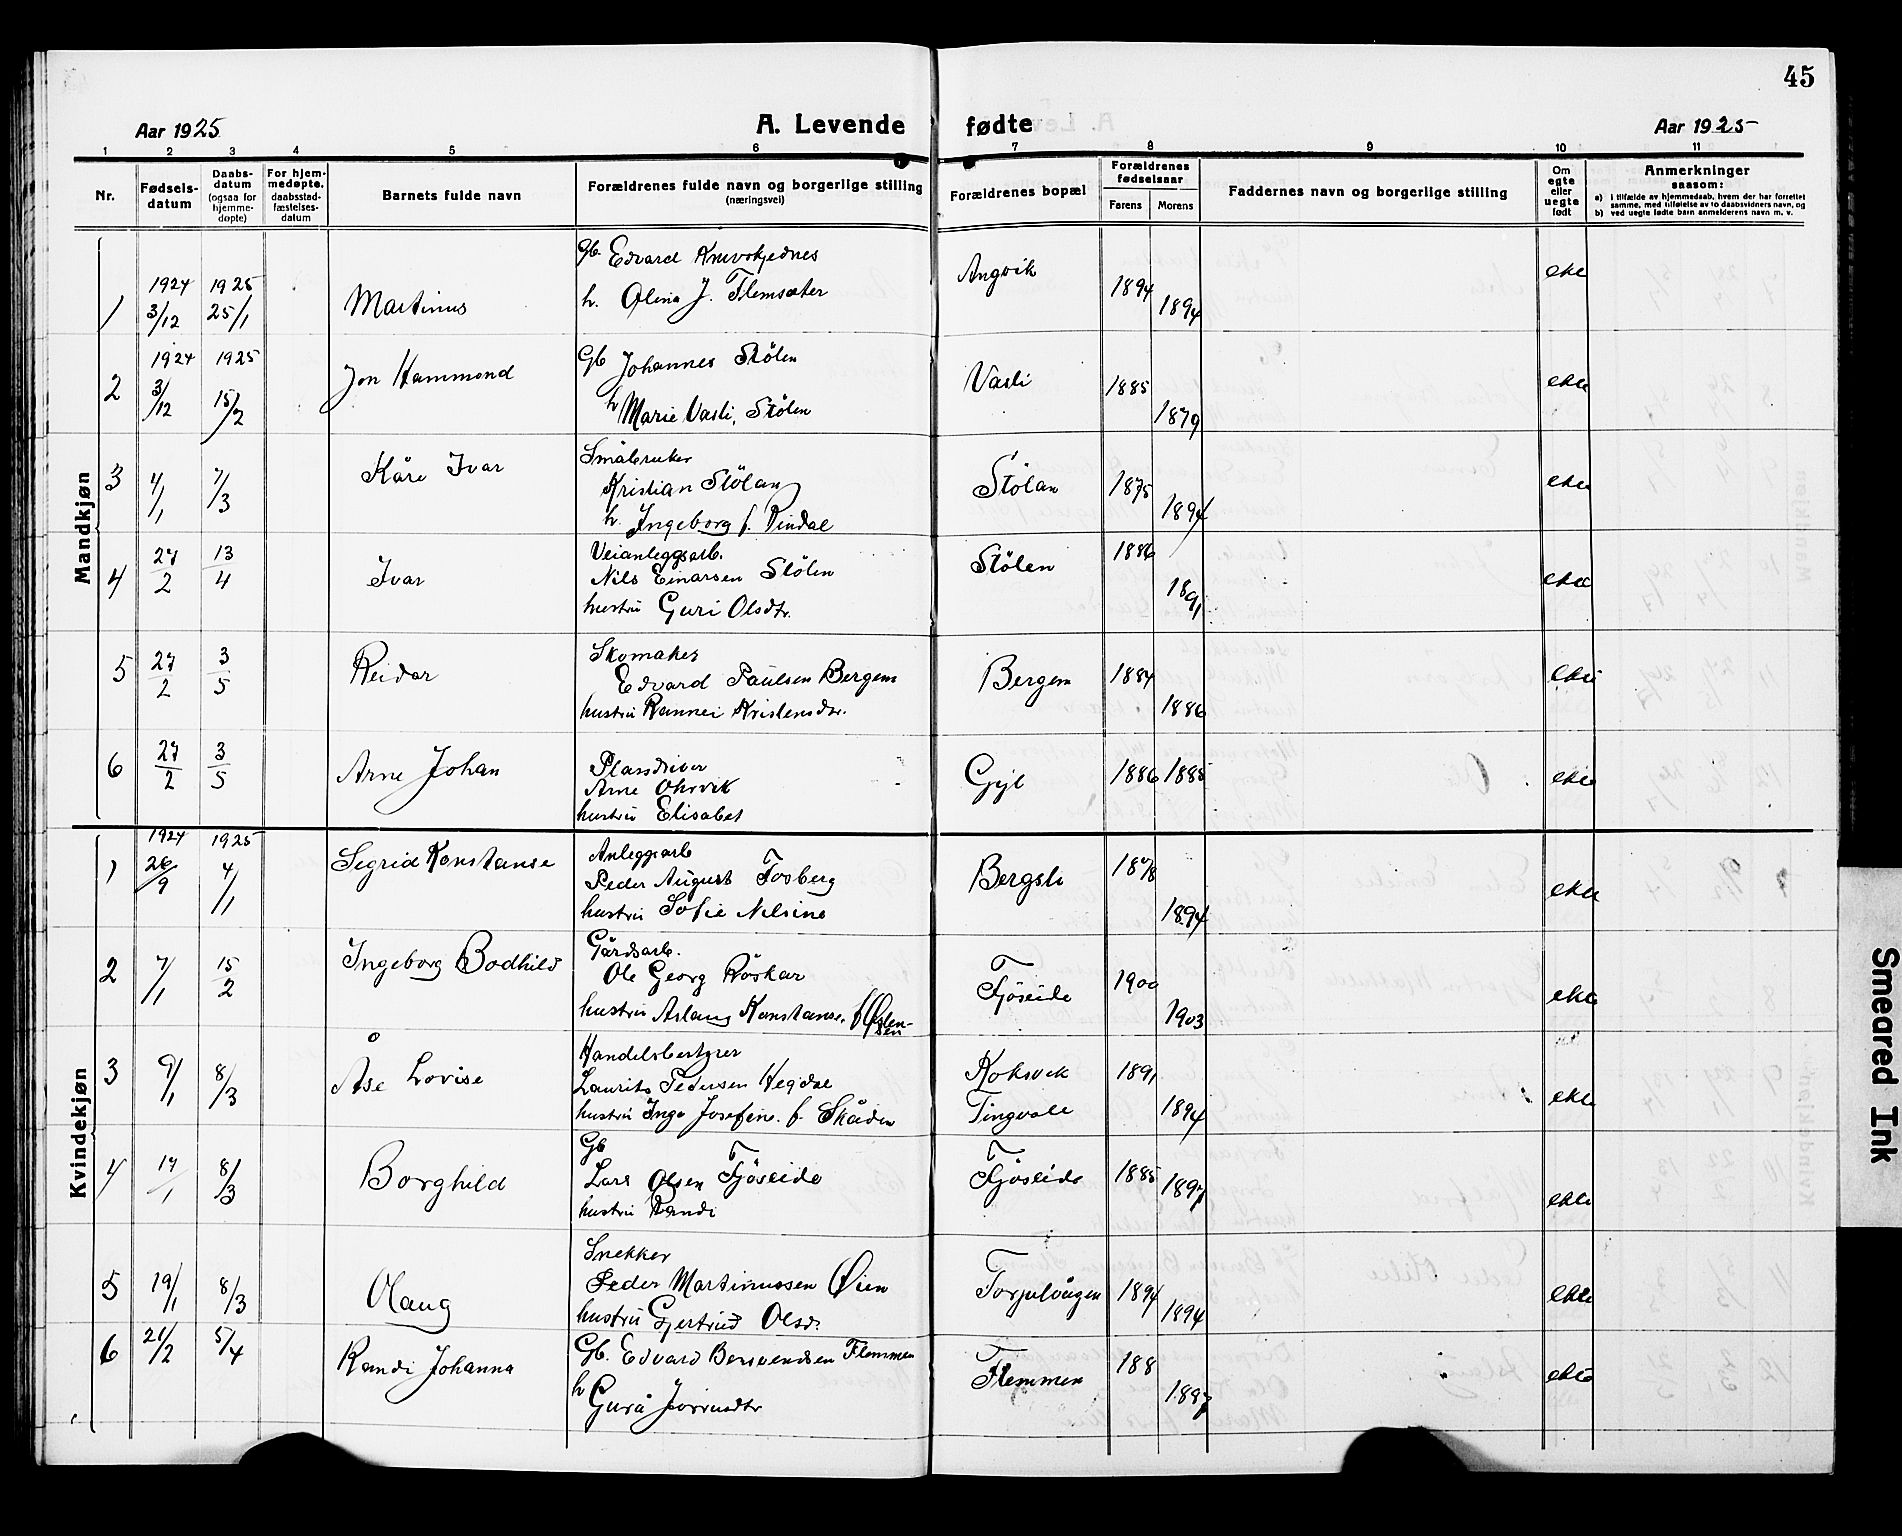 45
Aar 1925
A. Levende fødte
Aar 1925
1 2 3 4 5 6 7 8 9 10 11
Nr.
Fødsels-
datum
Daabs-
datum
(ogsaa for
hjemme-
døpte)
For hjem-
medøpte,
daabsstad-
fæstelses-
datum
Barnets fulde navn
Forældrenes fulde navn og borgerlige stilling
(næringsvei)
Forældrenes bopæl
Forældrenes
fødselsaar
Farens Morens
Faddernes navn og borgerlige stilling
Om
egte
eller
uegte
født
Anmerkninger
saasom:
a) i tilfælde av hjemmedaab, hvem der har forrettet
samme, med tilføielse av to daabsvidners navn, og
b) ved uegte fødte barn anmelderens navn m. v.
Mandkjøn
1 1924 3/12 1925 25/1 Martinus
Gb. Edvard
h. Olina J. Flemsæter
Angvik 1894 1894 ekte
2 1924 3/12 1925 15/2 Jon Hammond
Gb Johannes Stölen
h Marie Vasli, Stölen
Vasli 1885 1879 ekte
3 4/1 7/3 Kåre Ivar
Småbruker
Kristian Stölan
h. Ingeborg f. Rindal
Stölan 1875 1894 ekte
4 27/2 13/4 Ivar
Veianleggsarb.
Nils Einarsen Stölen
hustru Guri Olsdtr.
Stölen 1886 1891 ekte
5 27/2 3/5 Reidar
Skomaker
Edvard Paulsen Bergem
hustru Rannei Kristensdr.
Bergem 1884 1886 ekte
6 27/2 3/5 Arne Johan
Plassdriver
Arne Ohrvik
hustru Elisabet
Gyl 1886 1885 ekte
Kvindekjøn
1 1924 26/9 1925 4/1 Sigrid Konstanse
Anleggsarb
Peder August Fosberg
hustru Sofie Nilsine
Bergsli 1878 1894 ekte
2 7/1 15/2 Ingeborg Bodhild
Gårdsarb.
Ole Georg Röskar
hustru Aslaug Konstanse. f Østen-
sen
Fjöseide 1900 1903 ekte
3 9/1 8/3 Åse Lovise
Handelsbestyrer
Laurits Pedersen Hegdal
hustru Inga Josefine. f. Skåden
Koksvik
Tingvoll 1891 1894 ekte
4 17/1 8/3 Borghild
Gb
Lars Olsen Fjöseide
hustru Randi
Fjöseide 1885 1897 ekte
5 19/1 8/3 Olaug
Snekker
Peder Martinussen Øien
hustru Gjertrud Olsd.
Torjulvågen 1894 1894 ekte
6 21/2 5/4 Randi Johanna
Gb. Edvard Bersvendsen Flemmen
h Gurå
Flemmen 188 1887 ekte
Smeared Ink